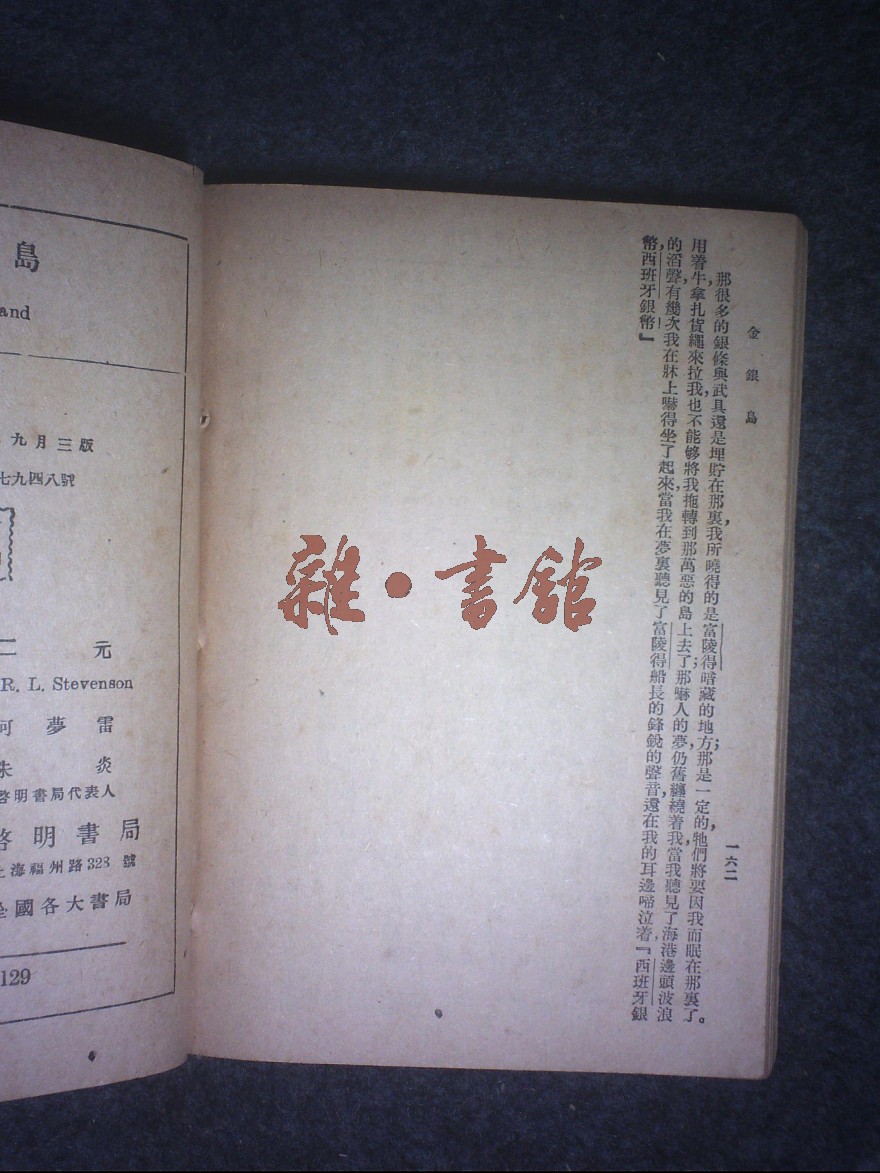 金銀島
一六二
那很多的銀條與武具,還是埋貯在那裏,我所曉得的是富陵得暗藏的地方;那是一定的,牠們將要因我而眠在那裏了。
用着牛,拿扎貨繩來拉我,也不能够將我拖轉到那萬惡的島上去了;那嚇人的夢,仍舊纏繞着我,當我聽見了海港邊頭波浪
的滔聲,有幾次我在牀上嚇得坐了起來,當我在夢裏聽見了富陵得船長的鋒銳的聲音,還在我的耳邊啼泣着,『西班牙銀
幣,西班牙銀幣!』
雜·書館
島
and
九月三版
七九四八號
二元
R. L. Stevenson
何夢雷
朱炎
啓明書局代表人
啓明書局
上海福州路328號
全國各大書局
129